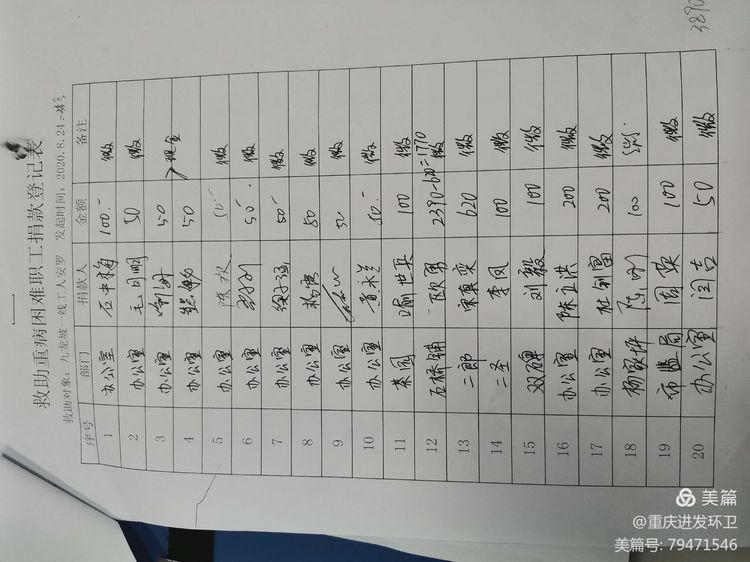 救助重病困难职工捐款登记表
救助对象：九龙坡 一线工人安罗 发起时间：2020.8.24
序号 部门 捐款人 金额 备注
1 办公室 石中梅 100.- 微
2 办公室 毛日明 50 微
3 办公室 50
4 办公室 50 现金
5 办公室 陈欢 50.-
6 办公室 50.- 微
7 办公室 50 微
8 办公室 杨 50 微
9 办公室 50 微
10 办公室 50.- 微
11 茶园 喻世兵 100 微
12 石桥铺 欧勇 2390-620=1770 微
13 二郎 620 微
14 二圣 李凤 100 微
15 双碑 刘毅 100 微
16 办公室 陈立洪 200 微
17 办公室 杜利富 200 微
18 杨家坪 陈 100
19 市监局 周英 100 微
20 办公室 闫吉 50 微
3890
美篇
@重庆进发环卫
美篇号: 79471546